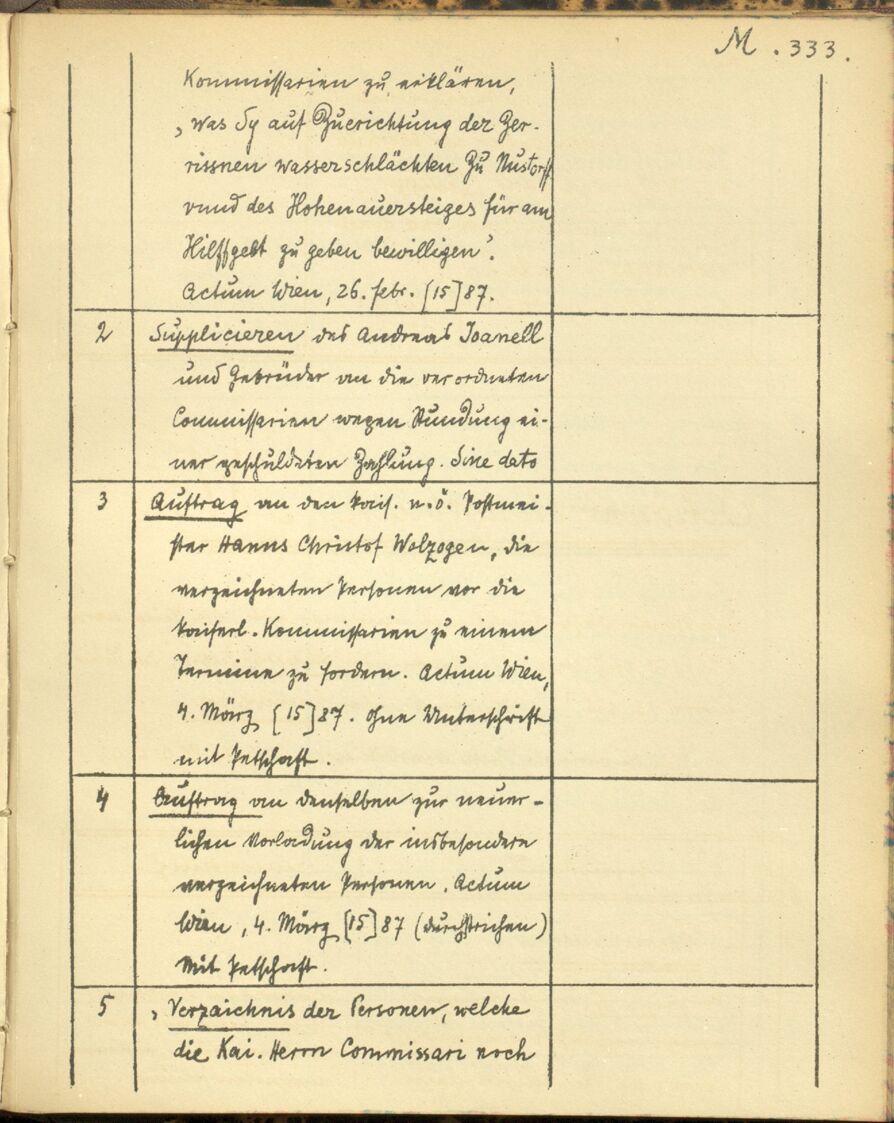 M. 333.
Kommissarien zu erklären,
„was Sy auf Zuerichtung der Zer-
rissnen wasserschlächten Zu Nustorff
vnnd des Hohenauersteiges für am
Hilffgelt zu geben bewilligen“.
Actum Wien, 26. febr. [15]87.
2 Supplicieren des Andreas Joanell
und Gebrüder an die verordneten
Commissarien wegen Stundung ei-
ner geschuldeten Zahlung. Sine dato
3 Auftrag an den kais. n.ö. Postmei-
ster Hanns Christof Wolzogen, die
verzeichneten Personen vor die
kaiserl. Kommissarien zu einem
Termine zu fordern. Actum Wien,
4. März [15]87. ohne Unterschrift
mit Petschaft.
4 Auftrag an denselben zur neuer-
lichen Vorladung der insbesondere
verzeichneten Personen. Actum
Wien, 4. März [15]87 (durchstrichen)
Mit Petschaft.
5 „Verzaichnis der Personen, welche
die Kai. Herrn Commissari noch